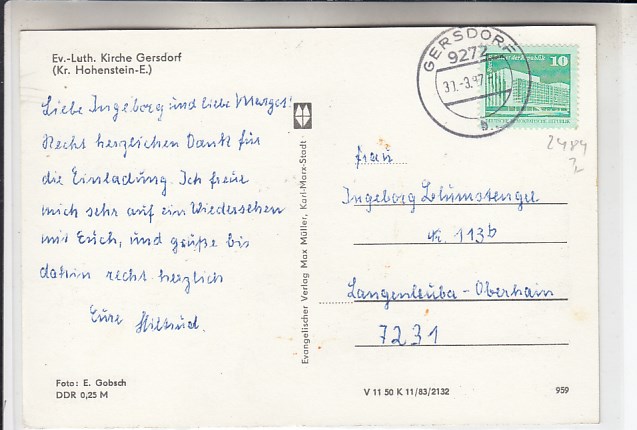 Ev.-Luth. Kirche Gersdorf
(Kr. Hohenstein-E.)
Liebe Ingeborg und liebe Margot!
Recht herzlichen Dank für
die Einladung. Ich freue
mich sehr auf ein Wiedersehen
mit Euch, und grüße bis
dahin recht herzlich
Eure Hiltrud.
Foto: E. Gobsch
DDR 0,25 M
Evangelischer Verlag Max Müller, Karl-Marx-Stadt
GERSDORF
9272
10
der Republik
2484
2
Frau
Ingeborg Blumstengel
Nr. 113b
Langenleuba-Oberhain
7231
V 11 50 K 11/83/2132
959